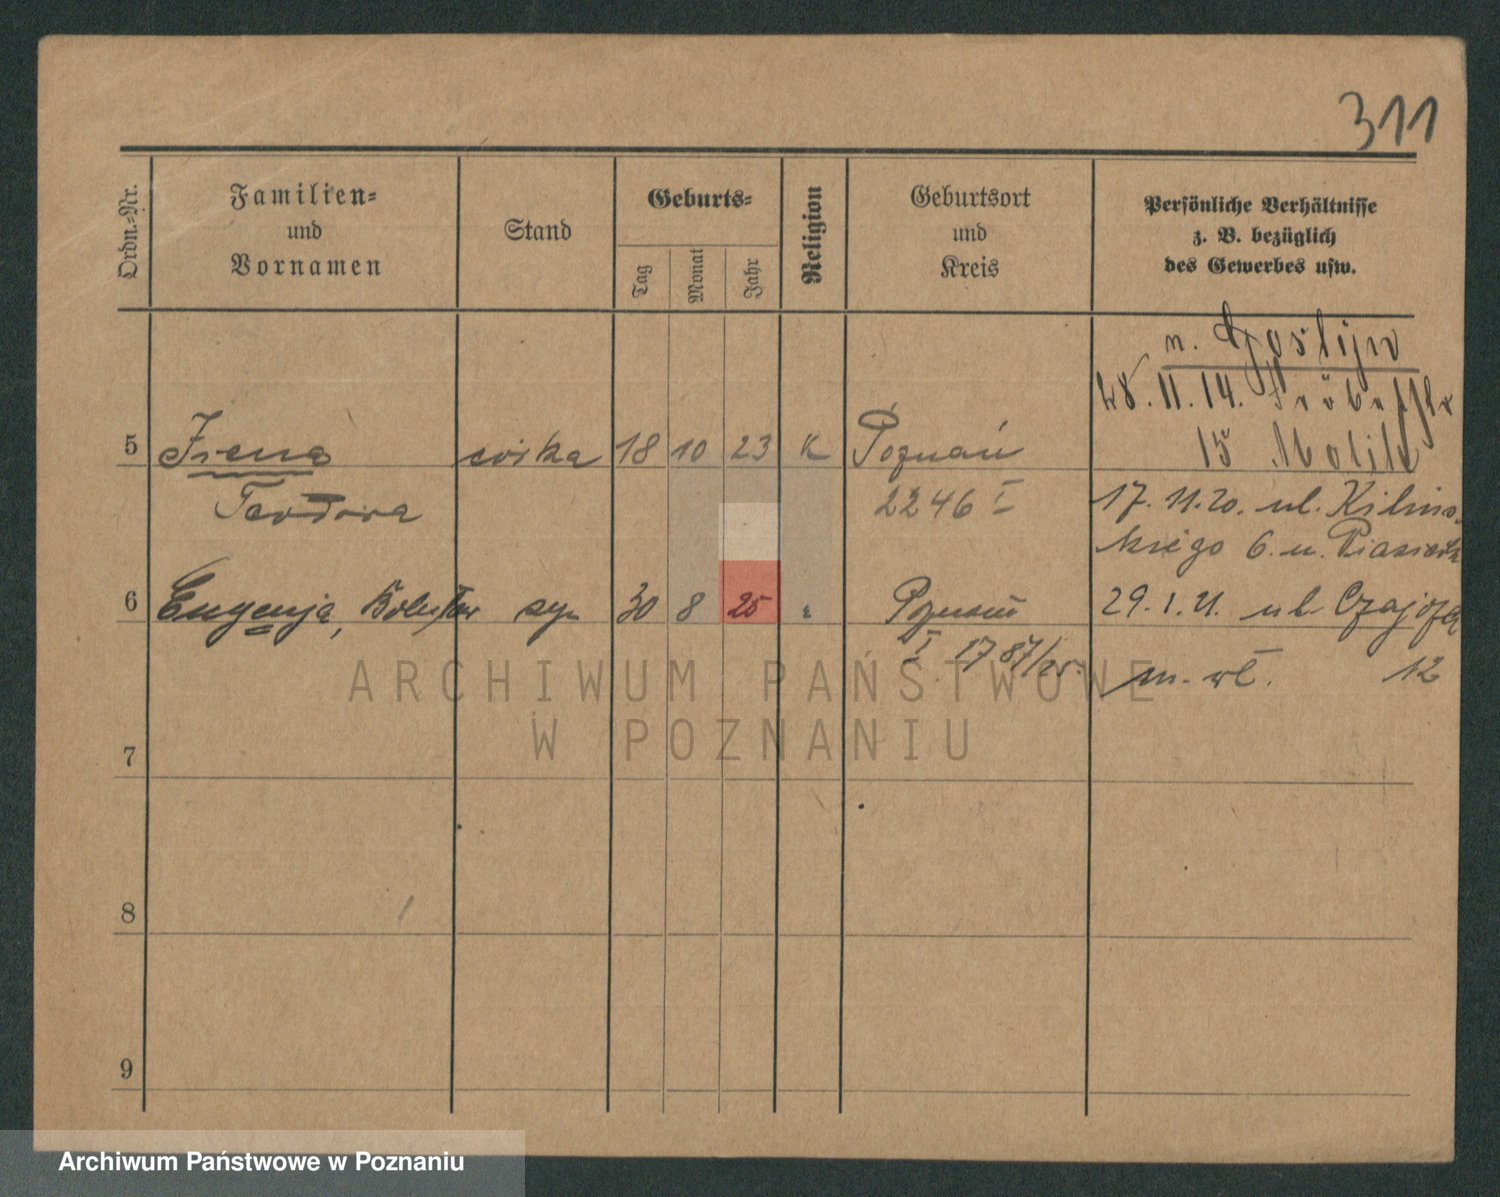 311
Ordn.-Nr.
Familien-
und
Vornamen
Stand
Geburts-
Tag
Monat
Jahr
Religion
Geburtsort
und
Kreis
Persönliche Verhältnisse
z. B. bezüglich
des Gewerbes usw.
n. Gostyn
28. 11. 14.
15
5 Irena córka 18 10 23 K Poznań
Teodora 2246 I
17. 11. 20. ul. Kilińs-
kiego 6. u.
6 Eugenja, syn 30 8 25 " Poznań
29. 1. 21. ul. Czajcza
I 1787/25.
m. wł. 12
ARCHIWUM PAŃSTWOWE
W POZNANIU
7
8
9
Archiwum Państwowe w Poznaniu